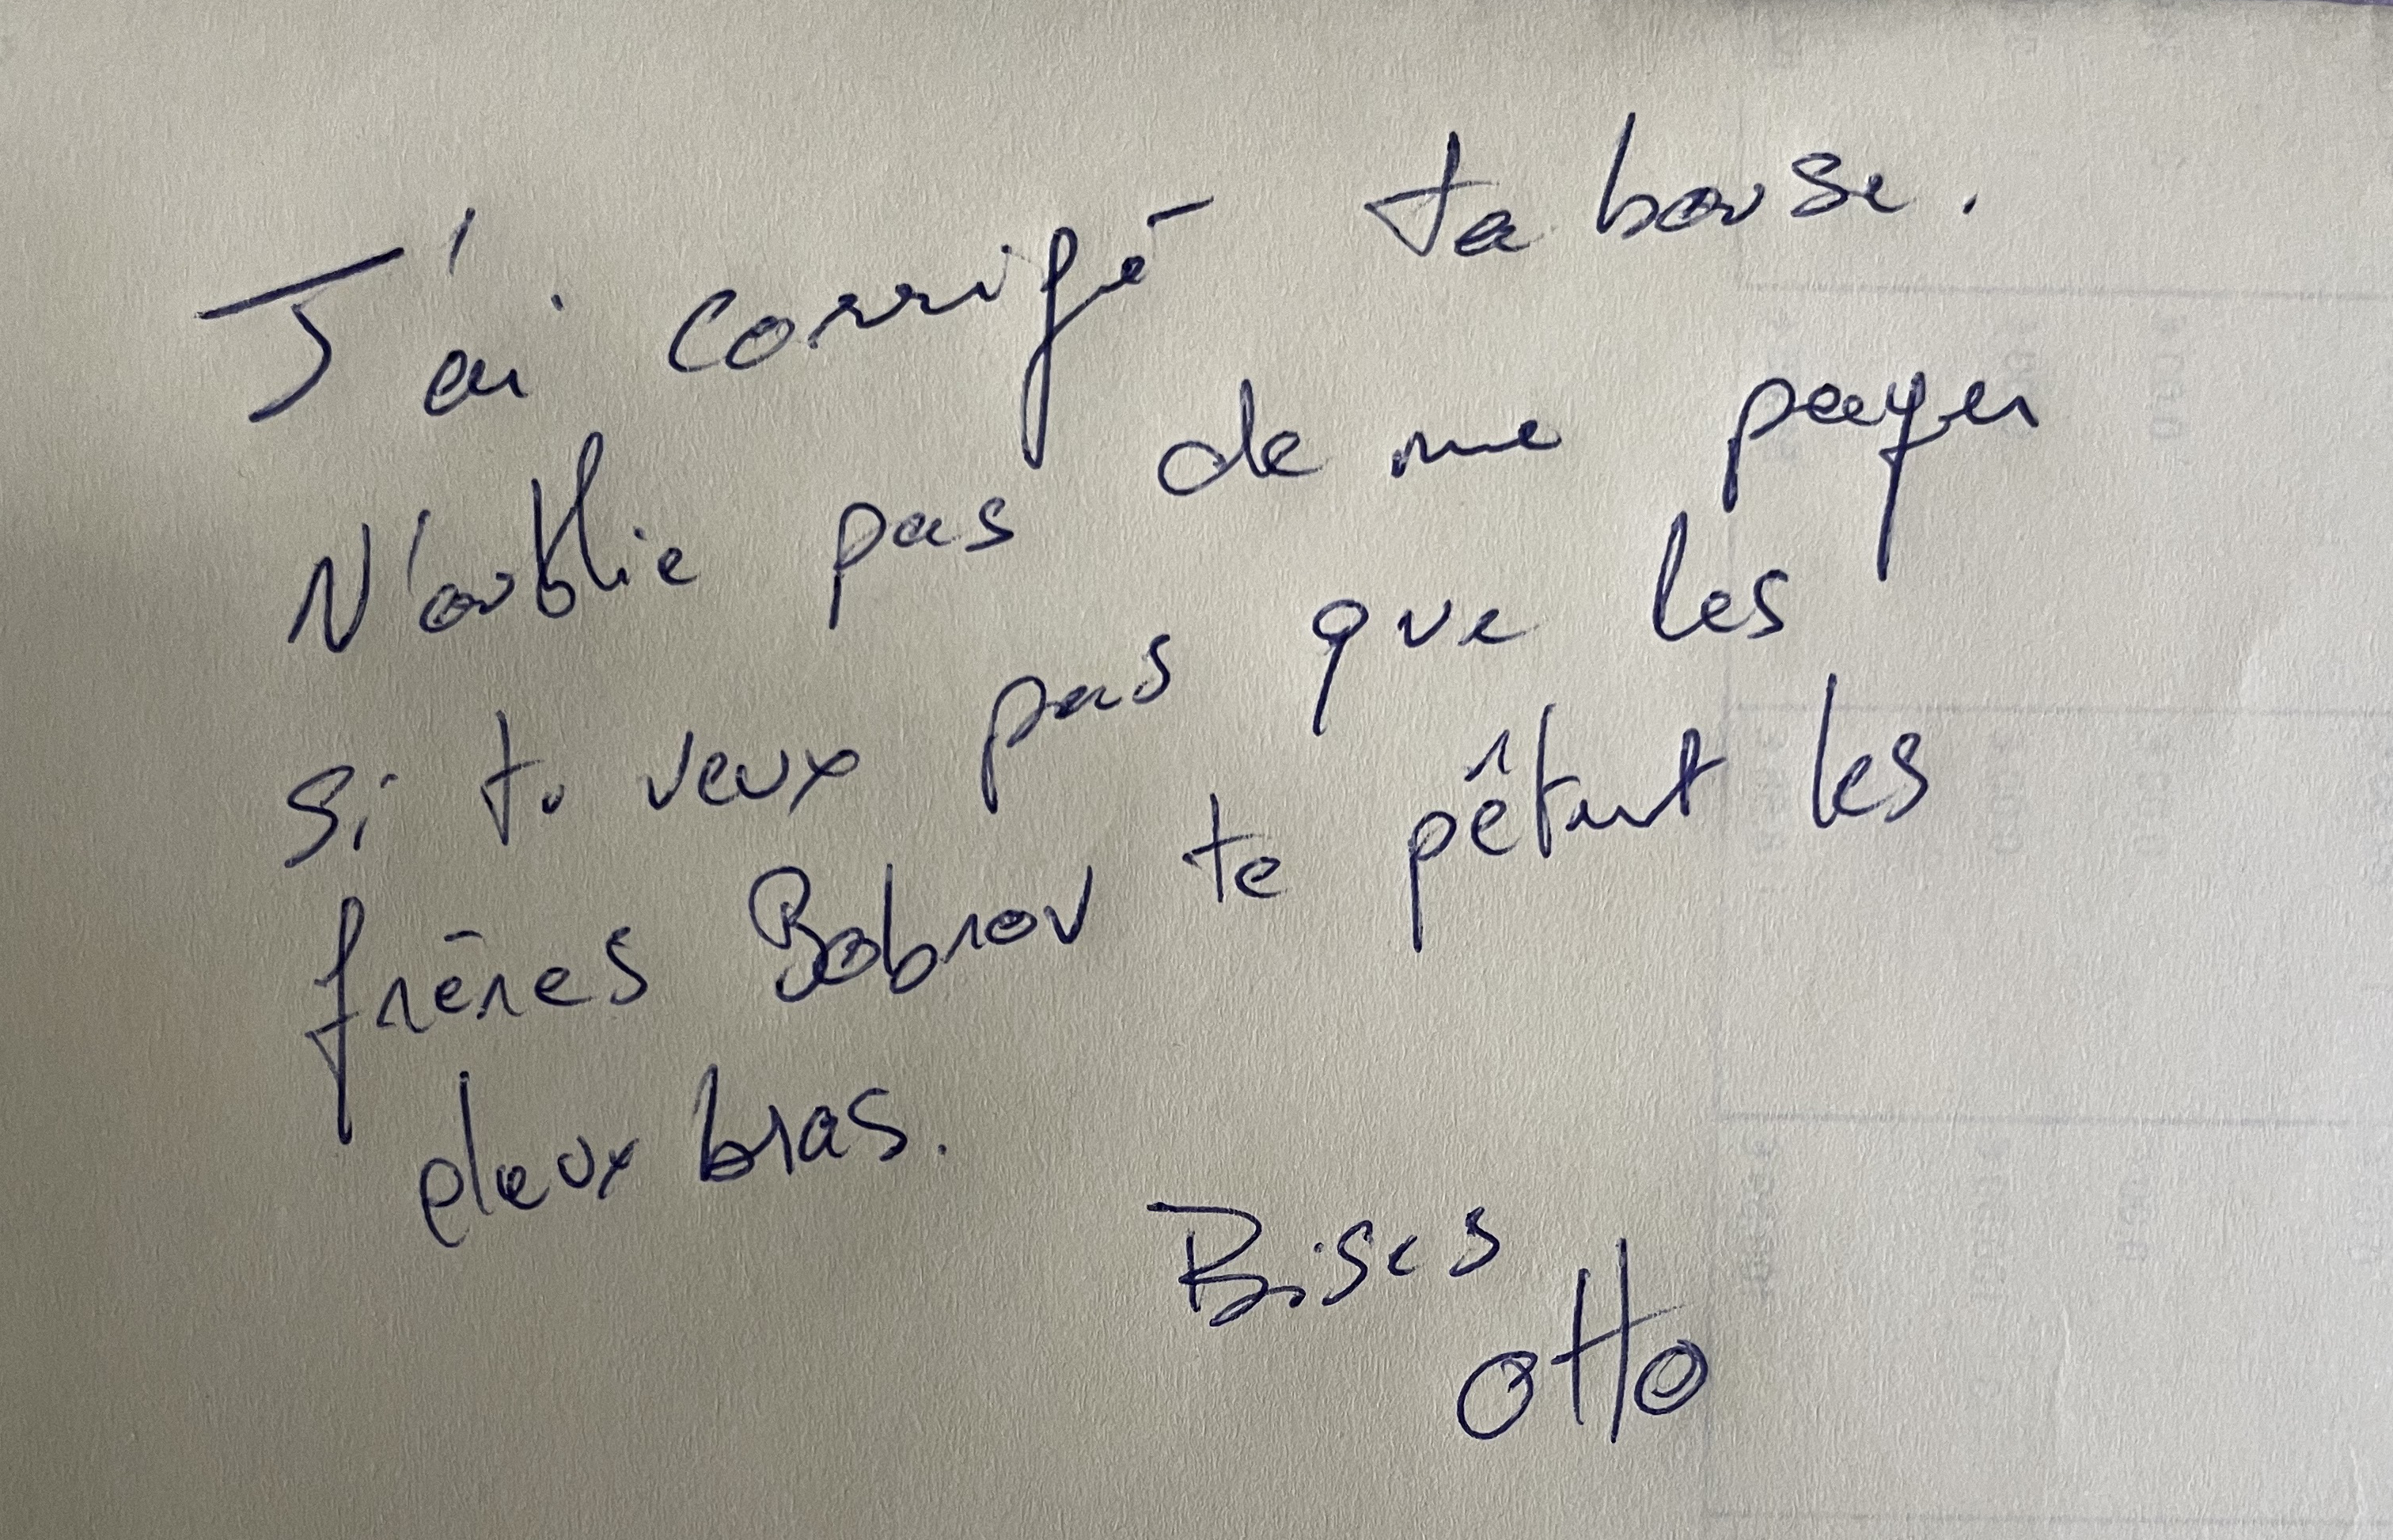 J'ai corrigé ta bouse.
N'oublie pas de me payer
si tu veux pas que les
frères Bobrov te pêtent les
deux bras.
Bises
Otto